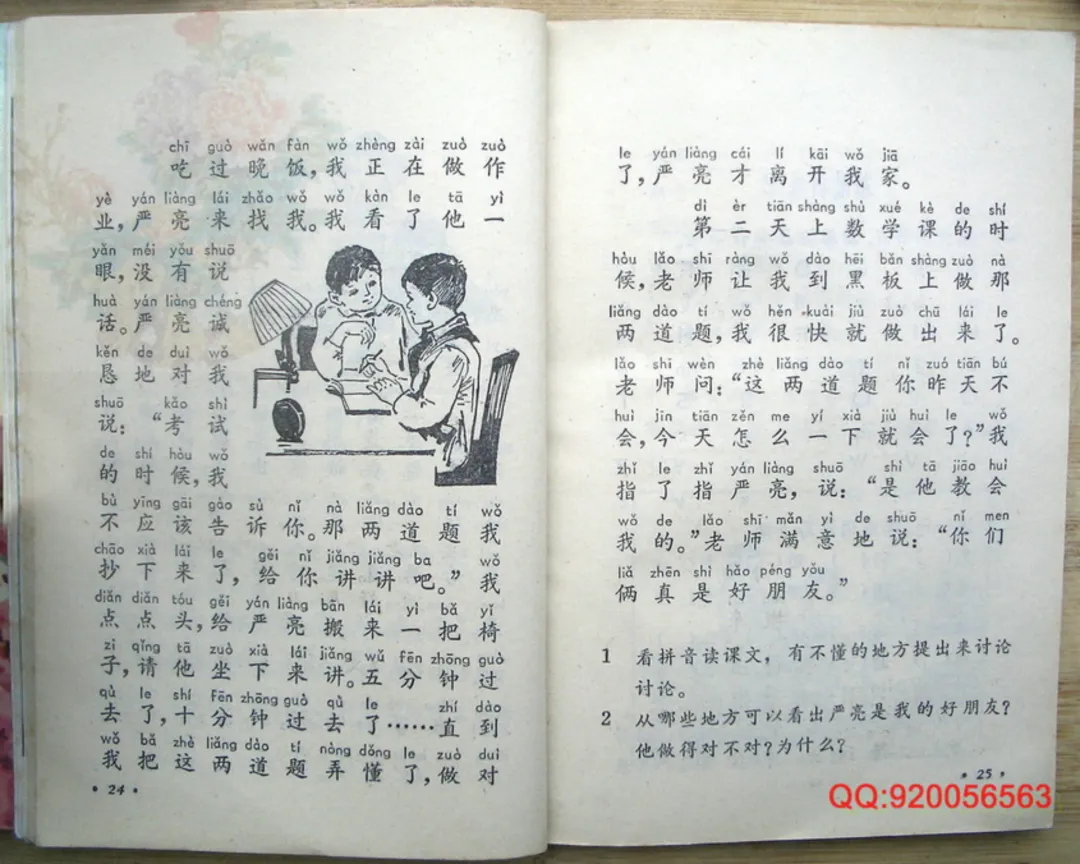 chī guò wǎn fàn wǒ zhèng zài zuò zuò
吃过晚饭，我正在做作
yè yán liàng lái zhǎo wǒ wǒ kàn le tā yì
业，严亮来找我。我看了他一
yǎn méi yǒu shuō
眼，没有说
huà yán liàng chéng
话。严亮诚
kěn de duì wǒ
恳地对我
shuō kǎo shì
说：“考试
de shí hòu wǒ
的时候，我
bù yīng gāi gào sù nǐ nà liǎng dào tí wǒ
不应该告诉你。那两道题我
chāo xià lái le gěi nǐ jiǎng jiǎng ba wǒ
抄下来了，给你讲讲吧。”我
diǎn diǎn tóu gěi yán liàng bān lái yì bǎ yǐ
点点头，给严亮搬来一把椅
zi qǐng tā zuò xià lái jiǎng wǔ fēn zhōng guò
子，请他坐下来讲。五分钟过
qù le shí fēn zhōng guò qù le zhí dào
去了，十分钟过去了……直到
wǒ bǎ zhè liǎng dào tí nòng dǒng le zuò duì
我把这两道题弄懂了，做对
·24·
le yán liàng cái lí kāi wǒ jiā
了，严亮才离开我家。
dì èr tiān shàng shù xué kè de shí
第二天上数学课的时
hòu lǎo shī ràng wǒ dào hēi bǎn shàng zuò nà
候，老师让我到黑板上做那
liǎng dào tí wǒ hěn kuài jiù zuò chū lái le
两道题，我很快就做出来了。
lǎo shī wèn zhè liǎng dào tí nǐ zuó tiān bú
老师问：“这两道题你昨天不
huì jīn tiān zěn me yí xià jiù huì le wǒ
会，今天怎么一下就会了？”我
zhǐ le zhǐ yán liàng shuō shì tā jiāo huì
指了指严亮，说：“是他教会
wǒ de lǎo shī mǎn yì de shuō nǐ men
我的。”老师满意地说：“你们
liǎ zhēn shì hǎo péng yǒu
俩真是好朋友。”
1 看拼音读课文，有不懂的地方提出来讨论
讨论。
2 从哪些地方可以看出严亮是我的好朋友？
他做得对不对？为什么？
·25·
QQ:920056563